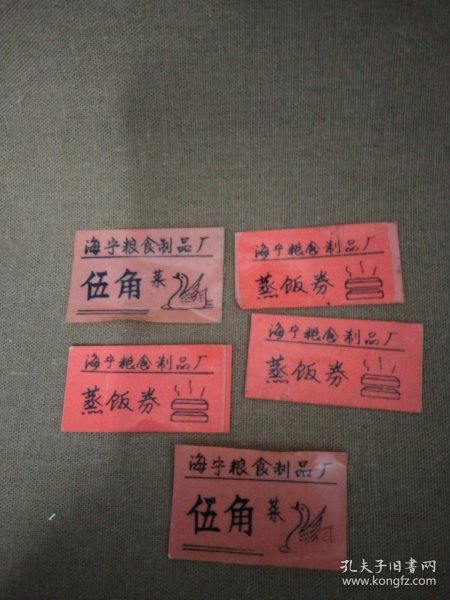 海宁粮食制品厂
伍角 菜
海宁粮食制品厂
蒸饭券
海宁粮食制品厂
蒸饭券
海宁粮食制品厂
蒸饭券
海宁粮食制品厂
伍角 菜
孔夫子旧书网
www.kongfz.com